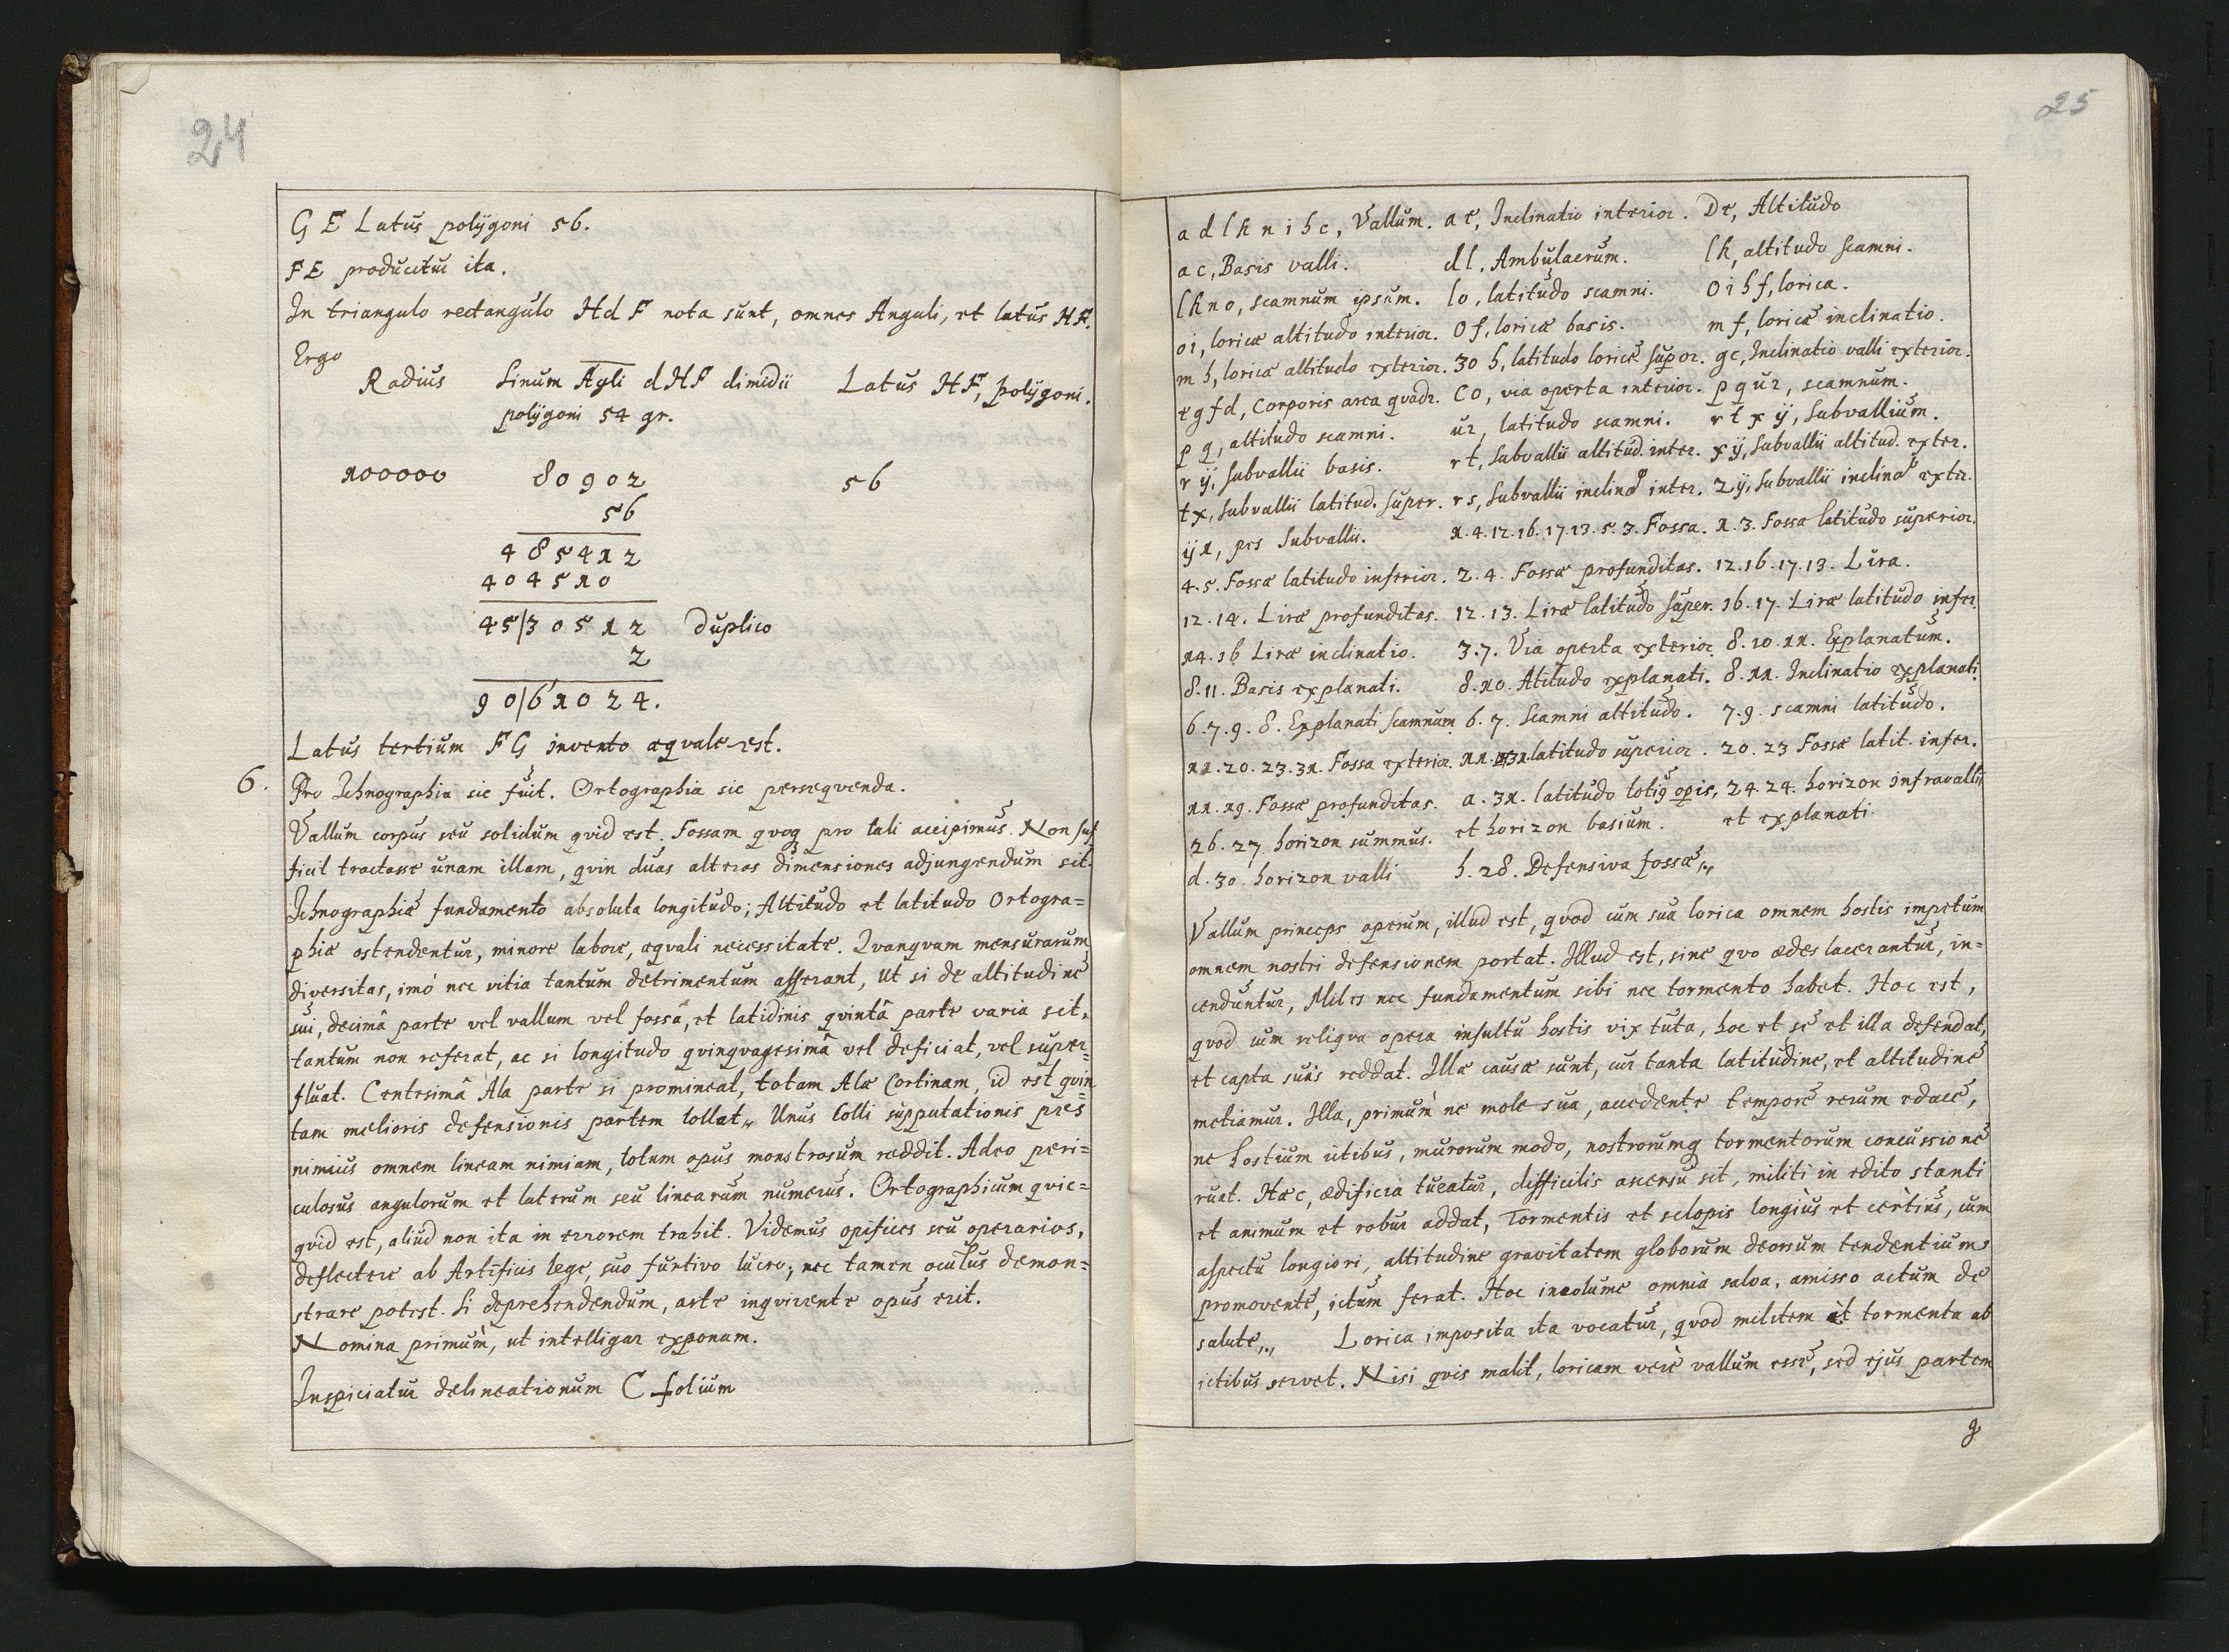 24
G E Latus polÿgoni 56.
FE producitur ita.
In triangulo rectangulo HdF nota sunt, omnes Anguli, et latus HF.
Ergo
Radius Sinum Agli dHF dimidii Latus HF, polÿgoni.
polÿgoni 54 gr.
100000 80902 56
56
485412
404510
45|30512 Duplico
2
90|61024.
Latus tertium FG invento æqvale est.
6. Pro Ichnographia sic fuit. Ortographia sic perseqvenda.
Vallum corpus seu solidum qvid est. Fossam qvoq pro tali accipimus. Non suf
ficit tractasse unam illam, qvin duas alteras dimensiones adjungendum sit.
Ichnographiæ fundamento absoluta longitudo; Altitudo et latitudo Ortogra=
phiæ ostendentur, minore labore, æqvali necessitate. Qvanqvam mensurarum
diversitas, imò nec vitia tantum detrimentum afferant, ut si de altitudine
sui, decimâ parte vel vallum vel fossâ, et latidinis qvintâ parte varia sit,
tantum non referat, ac si longitudo qvinqvagesimâ vel deficiat, vel super=
fluat. Centesimâ Ala parte si promineat, totam Alæ Cortinam, id est qvin
tam melioris defensionis partem tollat„ Unus tolli supputationis pes
nimius omnem lineam nimiam, totum opus monstrosum reddit. Adeo peri=
culosus angulorum et laterum seu linearum numerus. Ortographicum qvic=
qvid est, aliud non ita in errorem trahit. Videmus opifices seu operarios,
deflectere ab Artificis lege, suo furtivo lucro; nec tamen oculus demon=
strare potest. Si deprehendendum, arte inqvirente opus erit.
Nomina primùm, ut intelligar exponam.
Inspiciatur delineationum C folium
25
a d l h n i b c, Vallum. a e, Inclinatio interior. De, Altitudo
a c, Basis valli. dl, Ambulacrum. lh, altitudo scamni.
lhno, scamnum ipsum. lo, latitudo scamni. oibf, lorica.
oi, loricæ altitudo interior. Of, loricæ basis. mf, loricæ inclinatio.
m b, loricæ altitudo exterior. 30 b, latitudo loricæ super. gc, Inclinatio valli exterior.
egfd, Corporis area qvadr. CO, via operta interior. pqur, scamnum.
pq, altitudo scamni. ur, latitudo scamni. rtxÿ, Subvallium.
rÿ, Subvallii basis. rt, Subvallii altitud. inter. xÿ, Subvallii altitud. exter.
tx, Subvallii latitud. super. rs, Subvallii inclina inter. Zÿ, Subvallii inclina exter.
ÿ1, pes Subvallii. 1.4.12.16.17.13.5.3. Fossa. 1.3. Fossæ latitudo superior.
4.5. Fossæ latitudo inferior. 2.4. Fossæ profunditas. 12.16.17.13. Lira.
12.14. Liræ profunditas. 12.13. Liræ latitudo super. 16.17. Liræ latitudo infer.
14.16 Liræ inclinatio. 3.7. Via operta exterior. 8.10.11. Explanatum.
8.11. Basis explanati. 8.10. Atitudo explanati. 8.11. Inclinatio explanati.
6.7.9.8. Explanati scamnum 6.7. Scamni altitudo. 7.9. scamni latitudo.
11.20.23.31. Fossa exterior. 11.31. latitudo superior. 20.23 Fossæ latit. infer.
11.19. Fossæ profunditas. a.31. latitudo totiq opis, 24.24. horizon infravallii
26.27. horizon summus. et horizon basium. et explanati.
d.30. horizon valli h.28. Defensiva fossæ„
Vallum princeps operum, illud est, qvod cum sua lorica omnem hostis impetum
omnem nostri defensionem portat. Illud est, sine qvo ædes lacerantur, in=
cenduntur, Miles nec fundamentum sibi nec tormento habet. Hoc est,
qvod cum reliqva opera insultu hostis vix tuta, hoc et se et illa defendat,
et capta suis reddat. Illæ causæ sunt, cur tanta latitudine, et altitudine
metiamur. Illa, primùm ne mole sua, accedente tempore rerum edace,
ne hostium ictibus, murorum modo, nostrorumq tormentorum concussione
ruat. Hæc, ædificia tueatur, difficilis ascensu sit, militi in edito stanti
et animum et robur addat, Tormentis et sclopis longiùs et certiùs, cum
aspectu longiori, altitudine gravitatem globorum deorsum tendentium
promovente, ictum ferat. Hoc incolume omnia salva, amisso actum de
salute„ Lorica imposita ita vocatur, qvod militem et tormenta ab
ictibus servet. Nisi qvis malit, loricam verè vallum esse, sed ejus partem
g